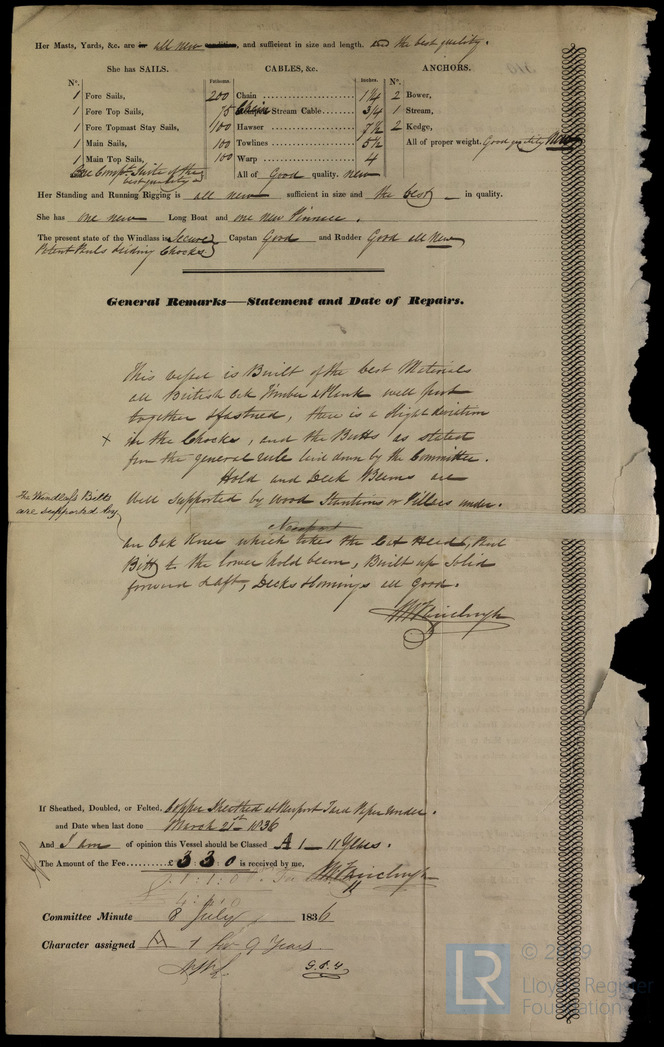 Her Masts, Yards, &c. are in all new condition, and sufficient in size and length. and the best quality.
She has SAILS. CABLES, &c. ANCHORS.
N°. Fathoms. Inches. N°.
1 Fore Sails, 200 Chain 1 1/4 2 Bower,
1 Fore Top Sails, 75 Stream Cable 3/4 1 Stream,
1 Fore Topmast Stay Sails, 100 Hawser 7 1/2 2 Kedge,
1 Main Sails, 100 Towlines 5 1/2 All of proper weight. Good quality New
1 Main Top Sails, 100 Warp 4
One Compt. Suite of the best quality All of Good quality. new
Her Standing and Running Rigging is all new sufficient in size and the best in quality.
She has one new Long Boat and one new Pinnace.
The present state of the Windlass is Secure Capstan Good and Rudder Good all New
Patent Pauls Chocks
General Remarks—Statement and Date of Repairs.
This vessel is Built of the best Materials
all British Oak Timber & Plank well put
together & fastned, there is a slight deviation
x in the Chocks, and the Butts as stated
from the general rule laid down by the Committee.
Hold and Deck Beams are
Well Supported by wood Stantions or Pillers under.
The Windlass Bitts are supported by
Newport
an Oak Knee which takes the Cat Head, Paul
Bitt to the lower hold beam, Built up Solid
forward & aft, Decks & Comings all Good.
If Sheathed, Doubled, or Felted, Copper Sheathed at Newport Tard Paper under.
and Date when last done March 21st 1836
And I am of opinion this Vessel should be Classed A 1 — 11 Years.
The Amount of the Fee £ 3 3 0 is received by me,
1 : 1 : 0
4 : 4 : 0
Committee Minute 8 July 1836
Character assigned A 1 for 9 Years
© 2019
LR
Lloyd's Register
Foundation